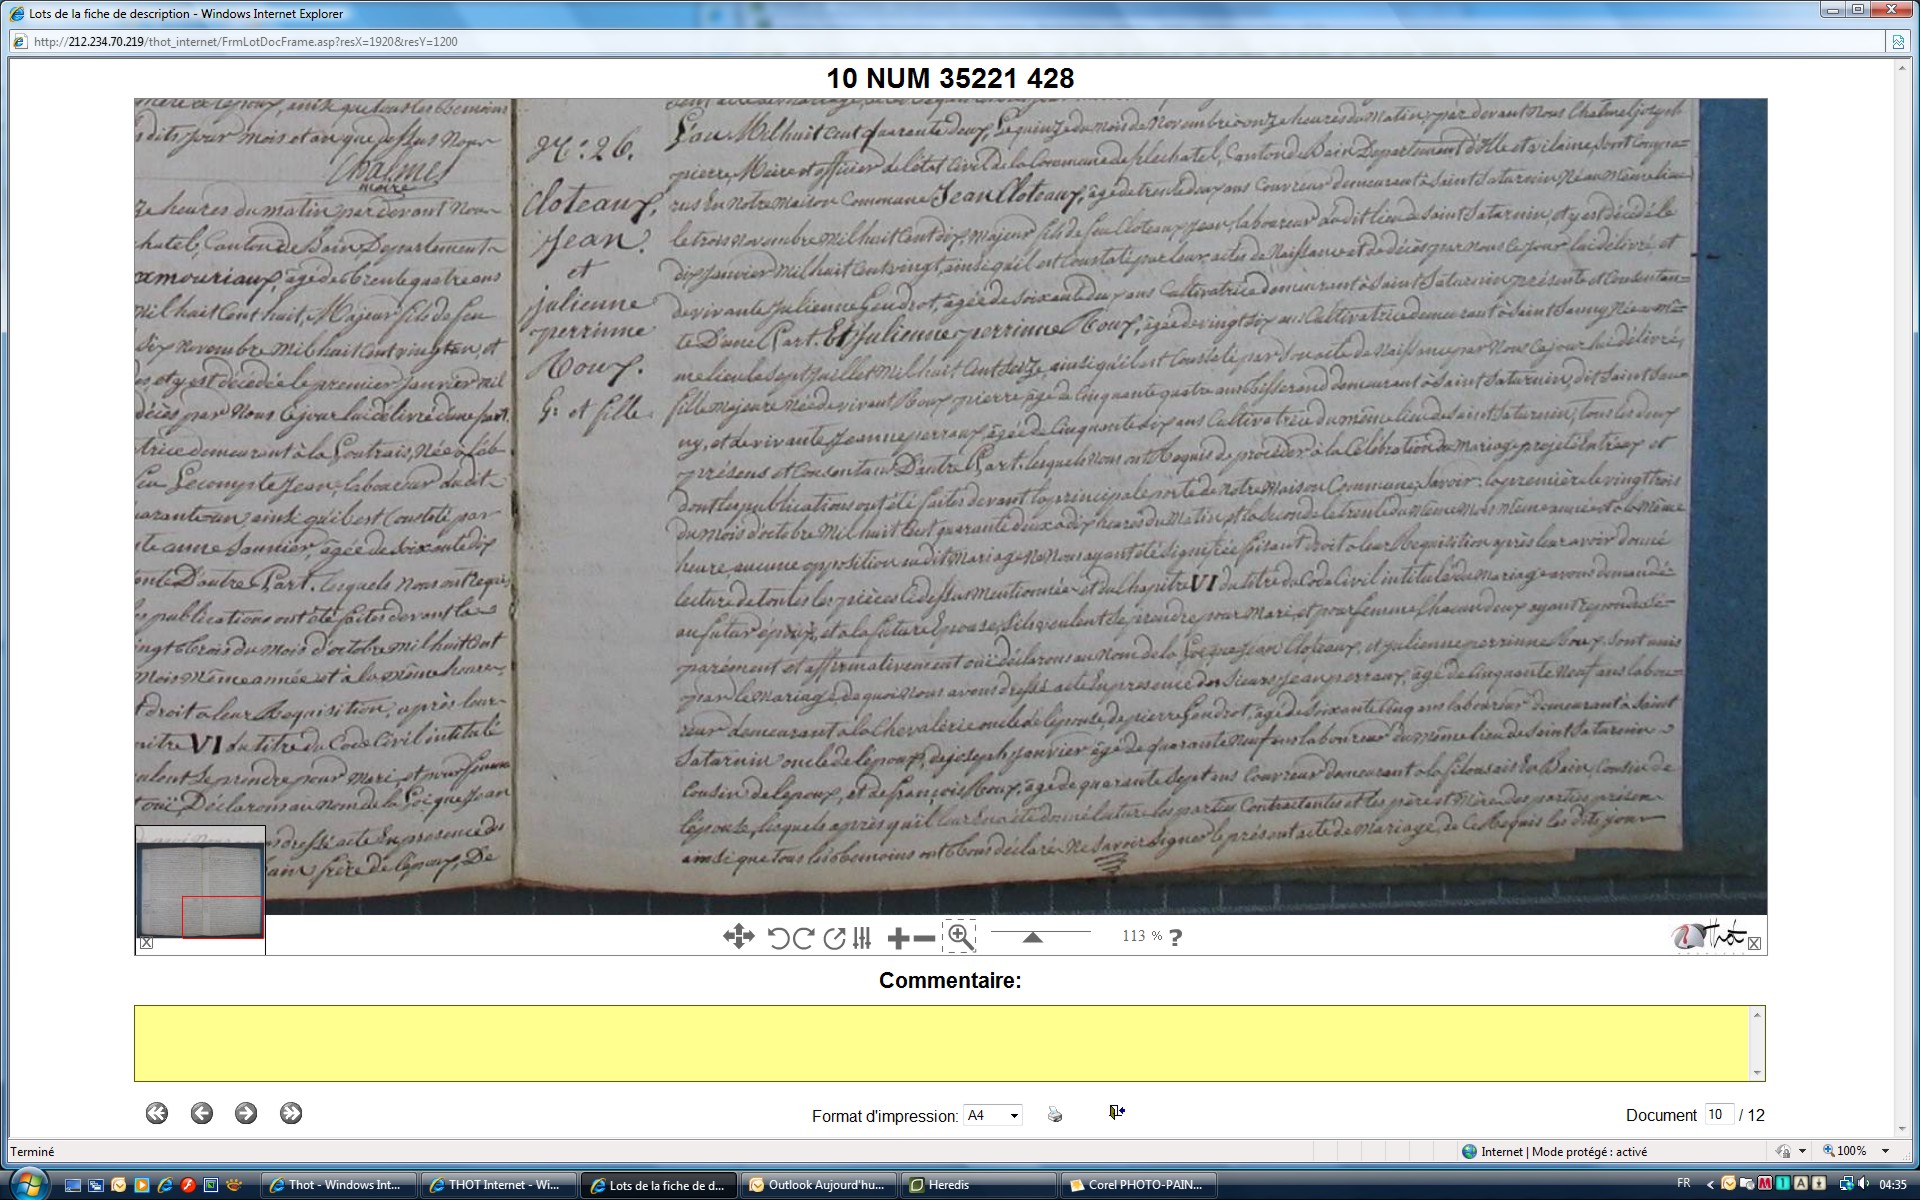 Lots de la fiche de description - Windows Internet Explorer
http://212.234.70.219/thot_internet/FrmLotDocFrame.asp?resX=1920&resY=1200
10 NUM 35221 428
dits jour mois et an que dessus
Chalmel
maire
ze heures du matin par devant Nous
hatel, Canton de Bain Departement
amouriaux, âgé de trente quatre ans
Mil huit Cent huit, Majeur fils de feu
dix Novembre Mil huit Cent vingt un et
es, et y est décédée le premier Janvier Mil
décès par Nous Ce jour lui délivré d'une part
trice demeurant à la Coutrais, Née à
feu Lecompte Jean, laboureur du dit
quarante un, ainsi qu'il est Constaté par
te anne Saunier, âgée de soixante dix
ente D'autre Part. lesquels Nous ont requis
s publications ont été faites devant la
ingt trois du Mois d'octobre Mil huit Cent
Mois Même année et à la même heure
t droit à leur Requisition, après leur
pitre VI du titre du Code Civil intitulé
ulent se prendre pour Mari et pour femme
t ouï, Déclarons au nom de la Loi que Jean
dressé acte En presence de
frère de l'époux, De
N°: 26.
Cloteaux,
Jean.
et
julienne
perrinne
Roux.
G: et fille.
L'an Mil huit Cent quarante deux, Le quinze du mois de Novembre onze heures du Matin, par devant Nous Chalmel joseph
pierre, Maire et officier de l'état Civil de la Commune de plechatel, Canton de Bain Departement d'Ille et vilaine, sont Compa=
rus En Notre Maison Commune Jean Cloteaux, âgé de trente deux ans Couvreur demeurant à Saint Saturnin Né au Même lieu
le trois Novembre Mil huit Cent dix, Majeur fils de feu Cloteaux Jean, laboureur au dit lieu de Saint Saturnin, et y est décédé le
dix Janvier Mil huit Cent vingt, ainsi qu'il est Constaté par leurs actes de Naissance et de décès par nous Ce jour lui délivré, et
de vivante Julienne Gendrot, âgée de soixante deux ans Cultivatrice demeurant à Saint Saturnin présente et Consentan=
te D'une Part. Et Julienne perrinne Roux, âgée de vingt six ans Cultivatrice demeurant à Saint Sauny Née au Mê=
me lieu le Sept Juillet Mil huit Cent Seize, ainsi qu'il est Constaté par Son acte de Naissance par Nous Ce jour lui délivré,
fille Majeure Née de vivant Roux pierre âgé de Cinquante quatre ans tisserand demeurant à Saint Saturnin, dit Saint Sau=
ny, et de vivante Jeanne perraux, âgée de Cinquante six ans Cultivatrice du même lieu de saint Saturnin, tous les deux
présens et Consentans D'autre Part. lesquels Nous ont Requis de procéder à la Célébration du Mariage projeté entr'eux et
dont les publications ont été faites devant la principale porte de notre Maison Commune, Savoir: la première le vingt trois
du mois d'octobre Mil huit Cent quarante deux à dix heures du Matin, et la seconde le trente du même Mois même année et à la Même
heure, aucune opposition au dit Mariage ne Nous ayant été signifiée, faisant droit à leur Requisition après leur avoir donné
lecture de toutes les pièces Ci dessus mentionnées et du Chapitre VI du titre du Code Civil intitulé du Mariage avons demandé
au futur époux, et à la future Epouse, S'ils veulent Se prendre pour Mari, et pour femme Chacun d'eux ayant répondu sé=
parément et affirmativement ouï déclarons au Nom de la Loi que Jean Cloteaux, et Julienne perrinne Roux. sont unis
par le Mariage, de quoi Nous avons dressé acte En presence des Sieurs Jean perraux, âgé de Cinquante Neuf ans labou=
reur demeurant à la Chevalerie oncle de l'épouse, de pierre Gendrot, âgé de soixante Cinq ans laboureur demeurant à Saint
Saturnin oncle de l'époux, de joseph Janvier âgé de quarante Neuf ans laboureur du même lieu de Saint Saturnin
Cousin de l'époux, et de françois Roux, âgé de quarante Sept ans Couvreur demeurant à la filousais En Bain, Cousin de
l'épouse, lesquels après qu'il leur En a été donné lecture les parties Contractantes et les père et Mères des parties présens
ainsi que tous les témoins ont tous déclaré Ne Savoir Signer le présent acte de Mariage, de Ce Requis les dits jour
113 % ?
Thot
Commentaire:
Format d'impression: A4
Document 10 / 12
Terminé
Internet | Mode protégé : activé
100%
Thot - Windows Int...
THOT Internet - Wi...
Lots de la fiche de d...
Outlook Aujourd'hu...
Heredis
Corel PHOTO-PAIN...
FR
04:35